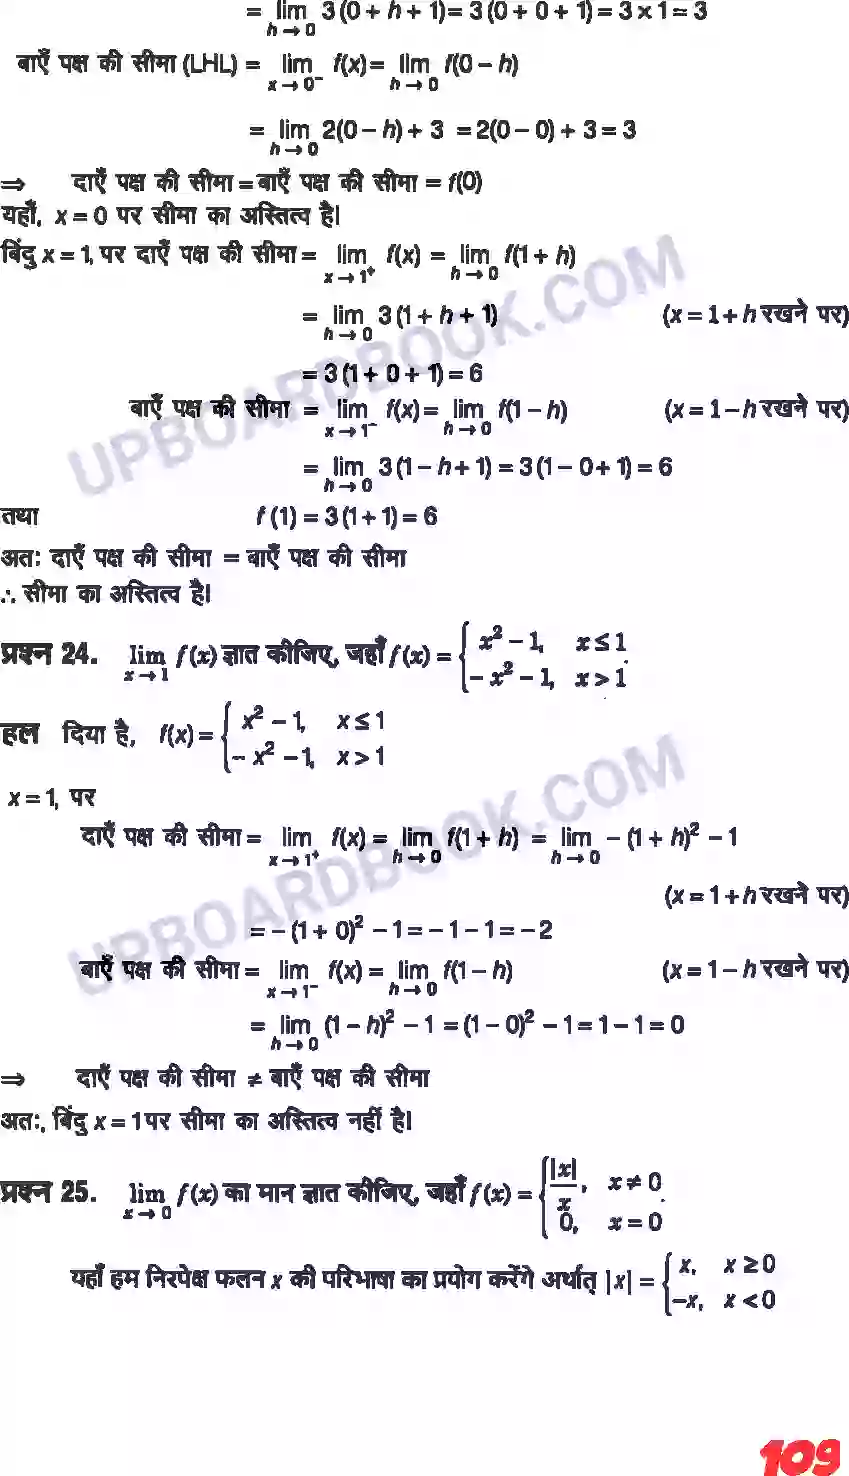 = lim 3(0 + h + 1) = 3(0 + 0 + 1) = 3 x 1 = 3
h → 0
बाएँ पक्ष की सीमा (LHL) = lim f(x) = lim f(0 – h)
x → 0⁻ h → 0
= lim 2(0 – h) + 3 = 2(0 – 0) + 3 = 3
h → 0
⇒ दाएँ पक्ष की सीमा = बाएँ पक्ष की सीमा = f(0)
यहाँ, x = 0 पर सीमा का अस्तित्व है।
बिंदु x = 1, पर दाएँ पक्ष की सीमा = lim f(x) = lim f(1 + h)
x → 1⁺ h → 0
= lim 3(1 + h + 1) (x = 1 + h रखने पर)
h → 0
= 3(1 + 0 + 1) = 6
बाएँ पक्ष की सीमा = lim f(x) = lim f(1 – h) (x = 1 – h रखने पर)
x → 1⁻ h → 0
= lim 3(1 – h + 1) = 3(1 – 0 + 1) = 6
h → 0
तथा f(1) = 3(1 + 1) = 6
अतः दाएँ पक्ष की सीमा = बाएँ पक्ष की सीमा
∴ सीमा का अस्तित्व है।
प्रश्न 24. lim f(x) ज्ञात कीजिए, जहाँ f(x) = { x² – 1, x ≤ 1
x → 1 – x² – 1, x > 1.
हल दिया है, f(x) = { x² – 1, x ≤ 1
– x² – 1, x > 1
x = 1, पर
दाएँ पक्ष की सीमा = lim f(x) = lim f(1 + h) = lim – (1 + h)² – 1
x → 1⁺ h → 0 h → 0
(x = 1 + h रखने पर)
= – (1 + 0)² – 1 = – 1 – 1 = – 2
बाएँ पक्ष की सीमा = lim f(x) = lim f(1 – h) (x = 1 – h रखने पर)
x → 1⁻ h → 0
= lim (1 – h)² – 1 = (1 – 0)² – 1 = 1 – 1 = 0
h → 0
⇒ दाएँ पक्ष की सीमा ≠ बाएँ पक्ष की सीमा
अतः, बिंदु x = 1 पर सीमा का अस्तित्व नहीं है।
प्रश्न 25. lim f(x) का मान ज्ञात कीजिए, जहाँ f(x) = { |x|/x, x ≠ 0
x → 0 0, x = 0.
यहाँ हम निरपेक्ष फलन x की परिभाषा का प्रयोग करेंगे अर्थात् |x| = { x, x ≥ 0
–x, x < 0
109
UPBOARDBOOK.COM
UPBOARDBOOK.COM